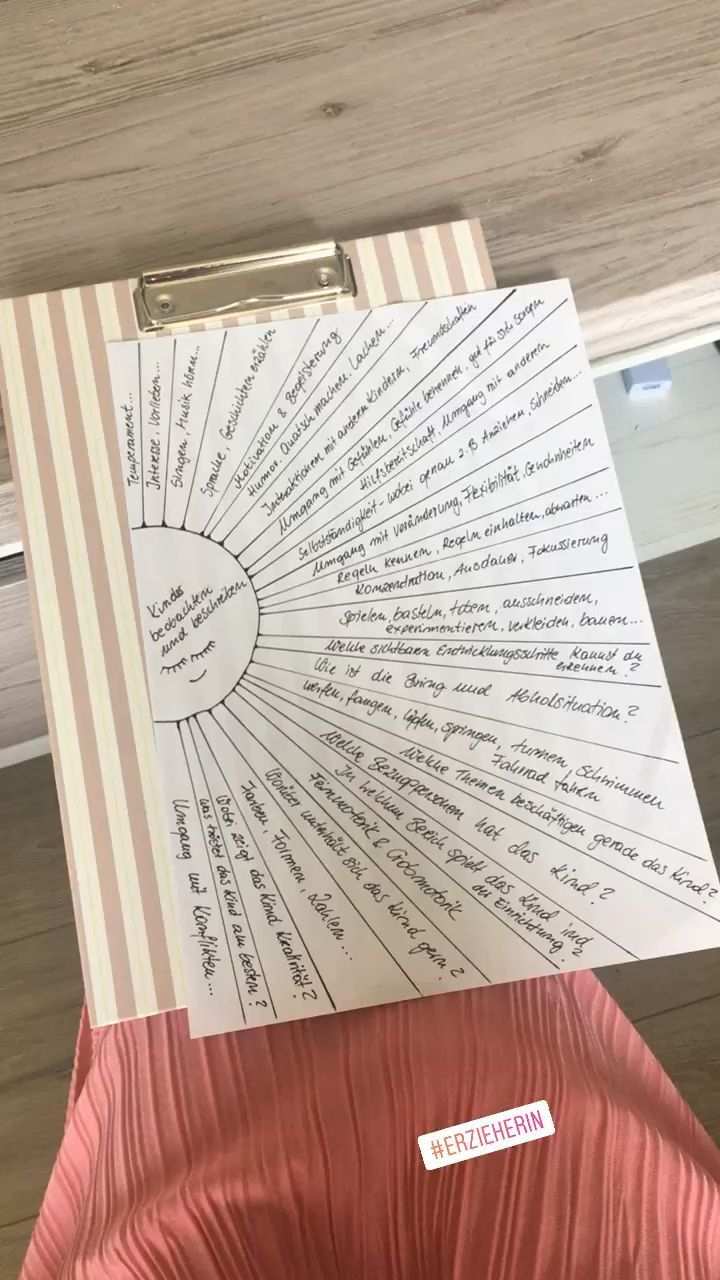 Kinder
beobachten
und beschreiben
Temperament...
Interesse, Vorlieben...
Singen, Musik hören...
Sprache, Geschichten erzählen
Motivation & Begeisterung
Humor, Quatsch machen, Lachen...
Interaktionen mit anderen Kindern, Freundschaften
Umgang mit Gefühlen, Gefühle benennen, gut für sich sorgen
Hilfsbereitschaft, Umgang mit anderen
Selbstständigkeit - wobei genau z.B Anziehen, schneiden...
Umgang mit Veränderung, Flexibilität, Gewohnheiten
Regeln kennen, Regeln einhalten, abwarten...
Konzentration, Ausdauer, Fokussierung
Spielen, basteln, töten, ausschneiden,
experimentieren, verkleiden, bauen...
Welche sichtbaren Entwicklungsschritte kannst du
erkennen?
Wie ist die Bring und Abholsituation?
werfen, fangen, hüpfen, springen, turnen, schwimmen
Fahrrad fahren
Welche Themen beschäftigen gerade das Kind?
Welche Bezugspersonen hat das Kind?
In welchem Bereich spielt das Kind
der Einrichtung?
Feinmotorik & Grobmotorik
Worüber unterhält sich das Kind gern?
Farben, Formen, Zahlen...
Wobei zeigt das Kind Kreativität?
Was tröstet das Kind am besten?
Umgang mit Konflikten...
#ERZIEHERIN